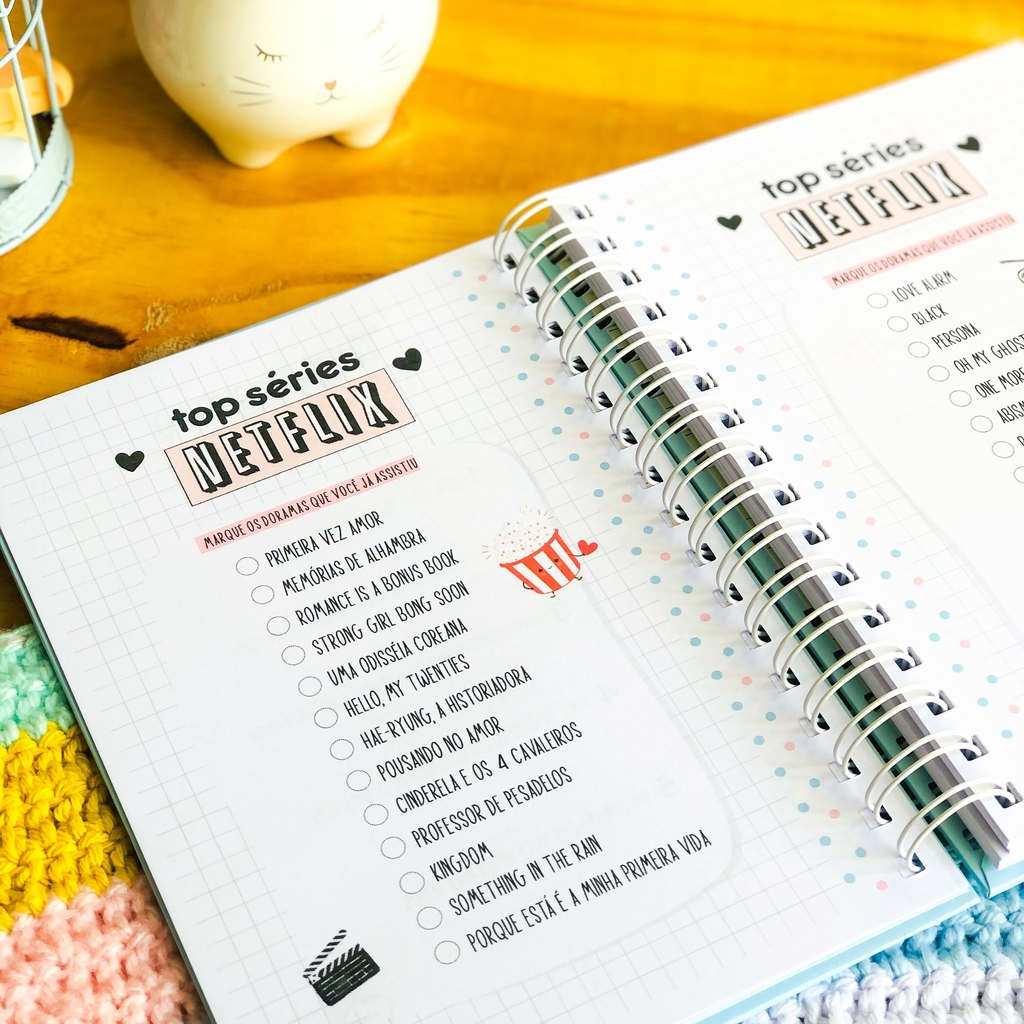 top séries
NETFLIX
MARQUE OS DORAMAS QUE VOCÊ JÁ ASSISTIU
PRIMEIRA VEZ AMOR
MEMÓRIAS DE ALHAMBRA
ROMANCE IS A BONUS BOOK
STRONG GIRL BONG SOON
UMA ODISSÉIA COREANA
HELLO, MY TWENTIES
HAE-RYUNG, A HISTORIADORA
POUSANDO NO AMOR
CINDERELA E OS 4 CAVALEIROS
PROFESSOR DE PESADELOS
KINGDOM
SOMETHING IN THE RAIN
PORQUE ESTÁ É A MINHA PRIMEIRA VIDA
top séries
NETFLIX
MARQUE OS DORAMAS QUE VOCÊ JÁ ASSISTIU
LOVE ALARM
BLACK
PERSONA
OH MY GHOST
ONE MORE